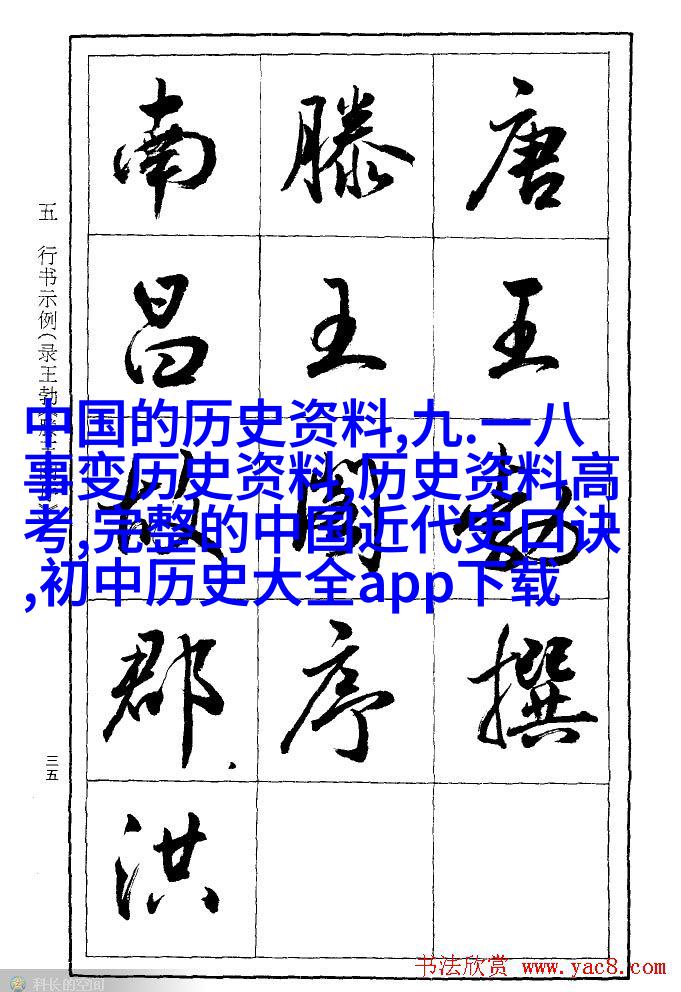 唐王勃撰
滕王閣序
南昌故郡.洪
五 行书示例(录王勃
三五
中国的历史资料,九.一八
事变历史资料,历史资料高
考,完整的中国近代史口诀
,初中历史大全app下载
书法欣赏 www.yac8.com
科长的空间